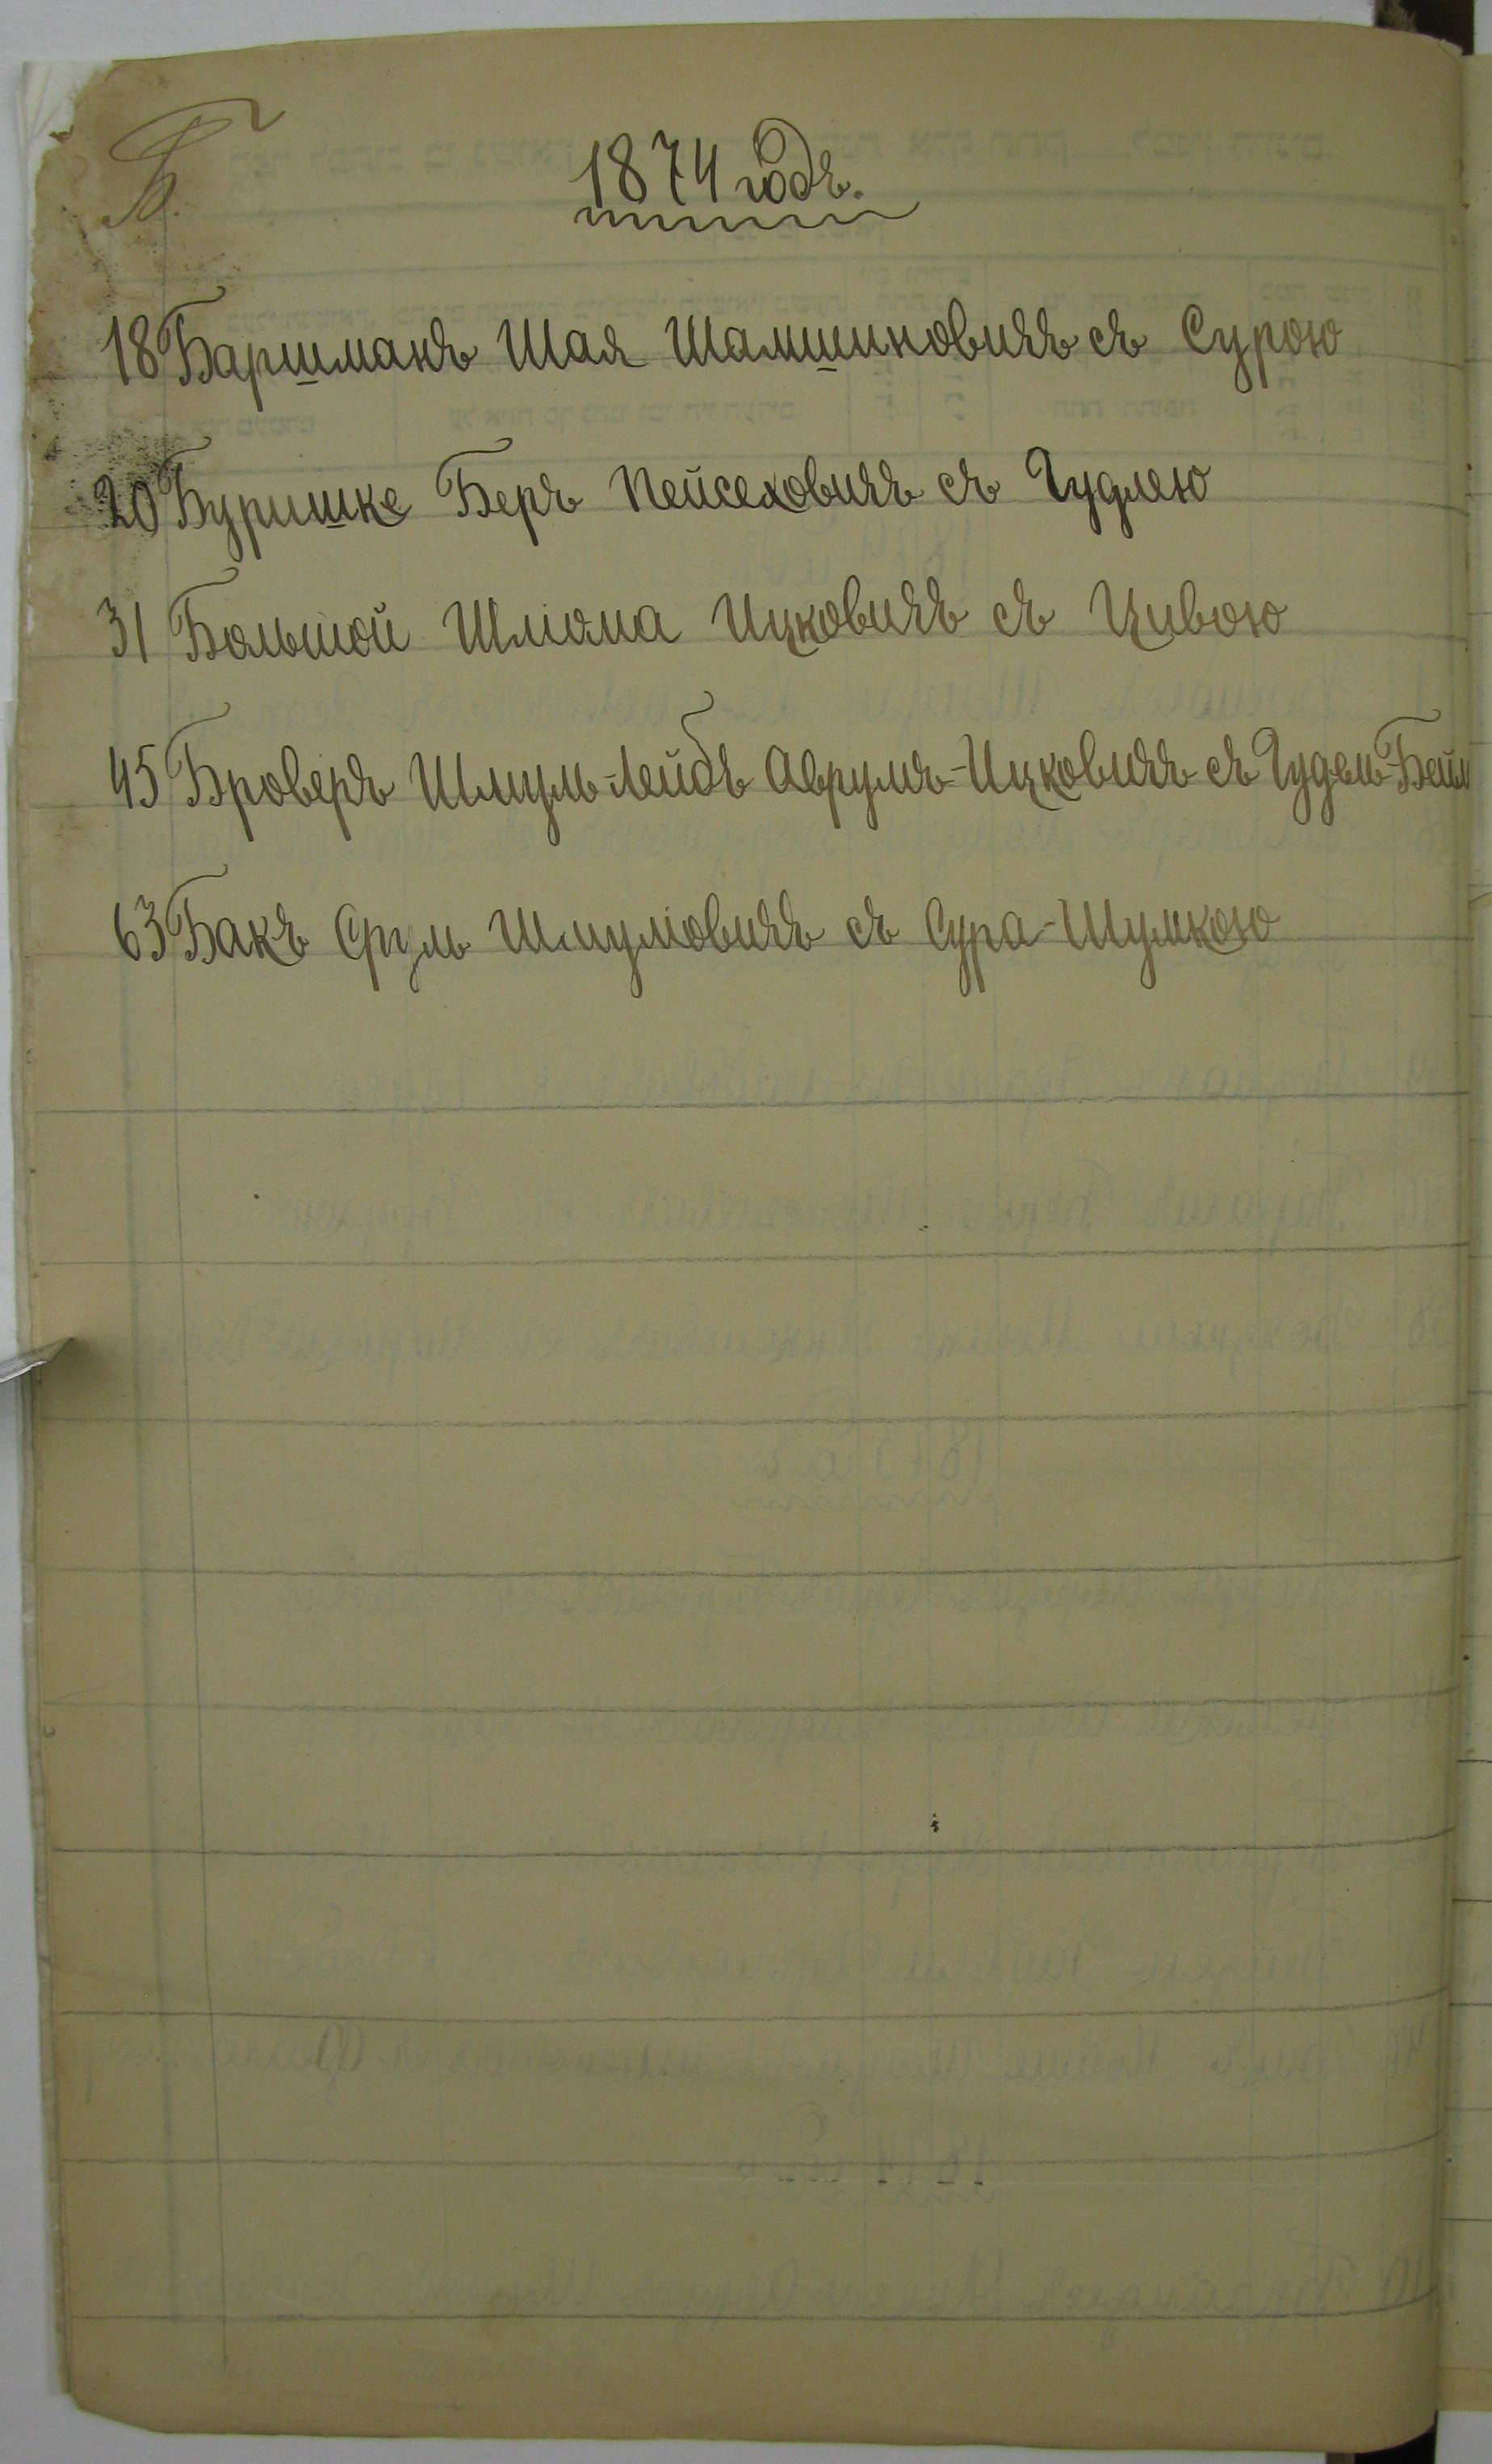 Б.
1874 годъ.
18 Баршманъ Шая Шамшиновичъ съ Сурою
20 Буришке Беръ Пейсеховичъ съ Гудлею
31 Большой Шліома Ицковичъ съ Цивою
45 Броверъ Шмуль-Лейбъ Аврумъ-Ицковичъ съ Гудель-Бейл
63 Бакъ Сруль Шмуліовичъ съ Сура-Шумкою